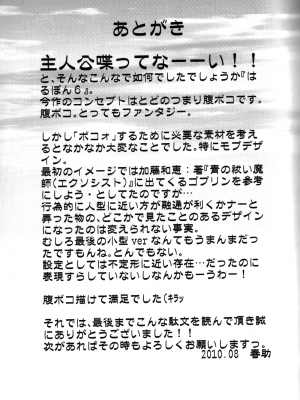 あとがき
主人公喋ってなーーい！！
と、そんなこんなで如何でしたでしょうか『は
るぽん６』。
今作のコンセプトはとどのつまり腹ボコです。
腹ボコ。とってもファンタジー。
しかし「ボコォ」するために必要な素材を考え
るとなかなか大変なことでした。特にモブデザ
イン。
最初のイメージでは加藤和恵：著『青の祓い魔
師（エクソシスト）』に出てくるゴブリンを参考
にしよう・としてたのですが…
行為的に人型に近い方が融通が利くかなーと
弄った物の、どこかで見たことのあるデザイン
になったのは変えられない事実。
むしろ最後の小型 ver なんてもうまんまだっ
たですもんね。とんでもない。
設定としては不定形に近い存在…だったのに
表現すらしていないしなんかもーうわー！
腹ボコ描けて満足でした（ｷﾗｯ
それでは、最後までこんな駄文を読んで頂き誠
にありがとうございました！！
次があればその時もよろしくお願いしますっ。
2010.08　春助